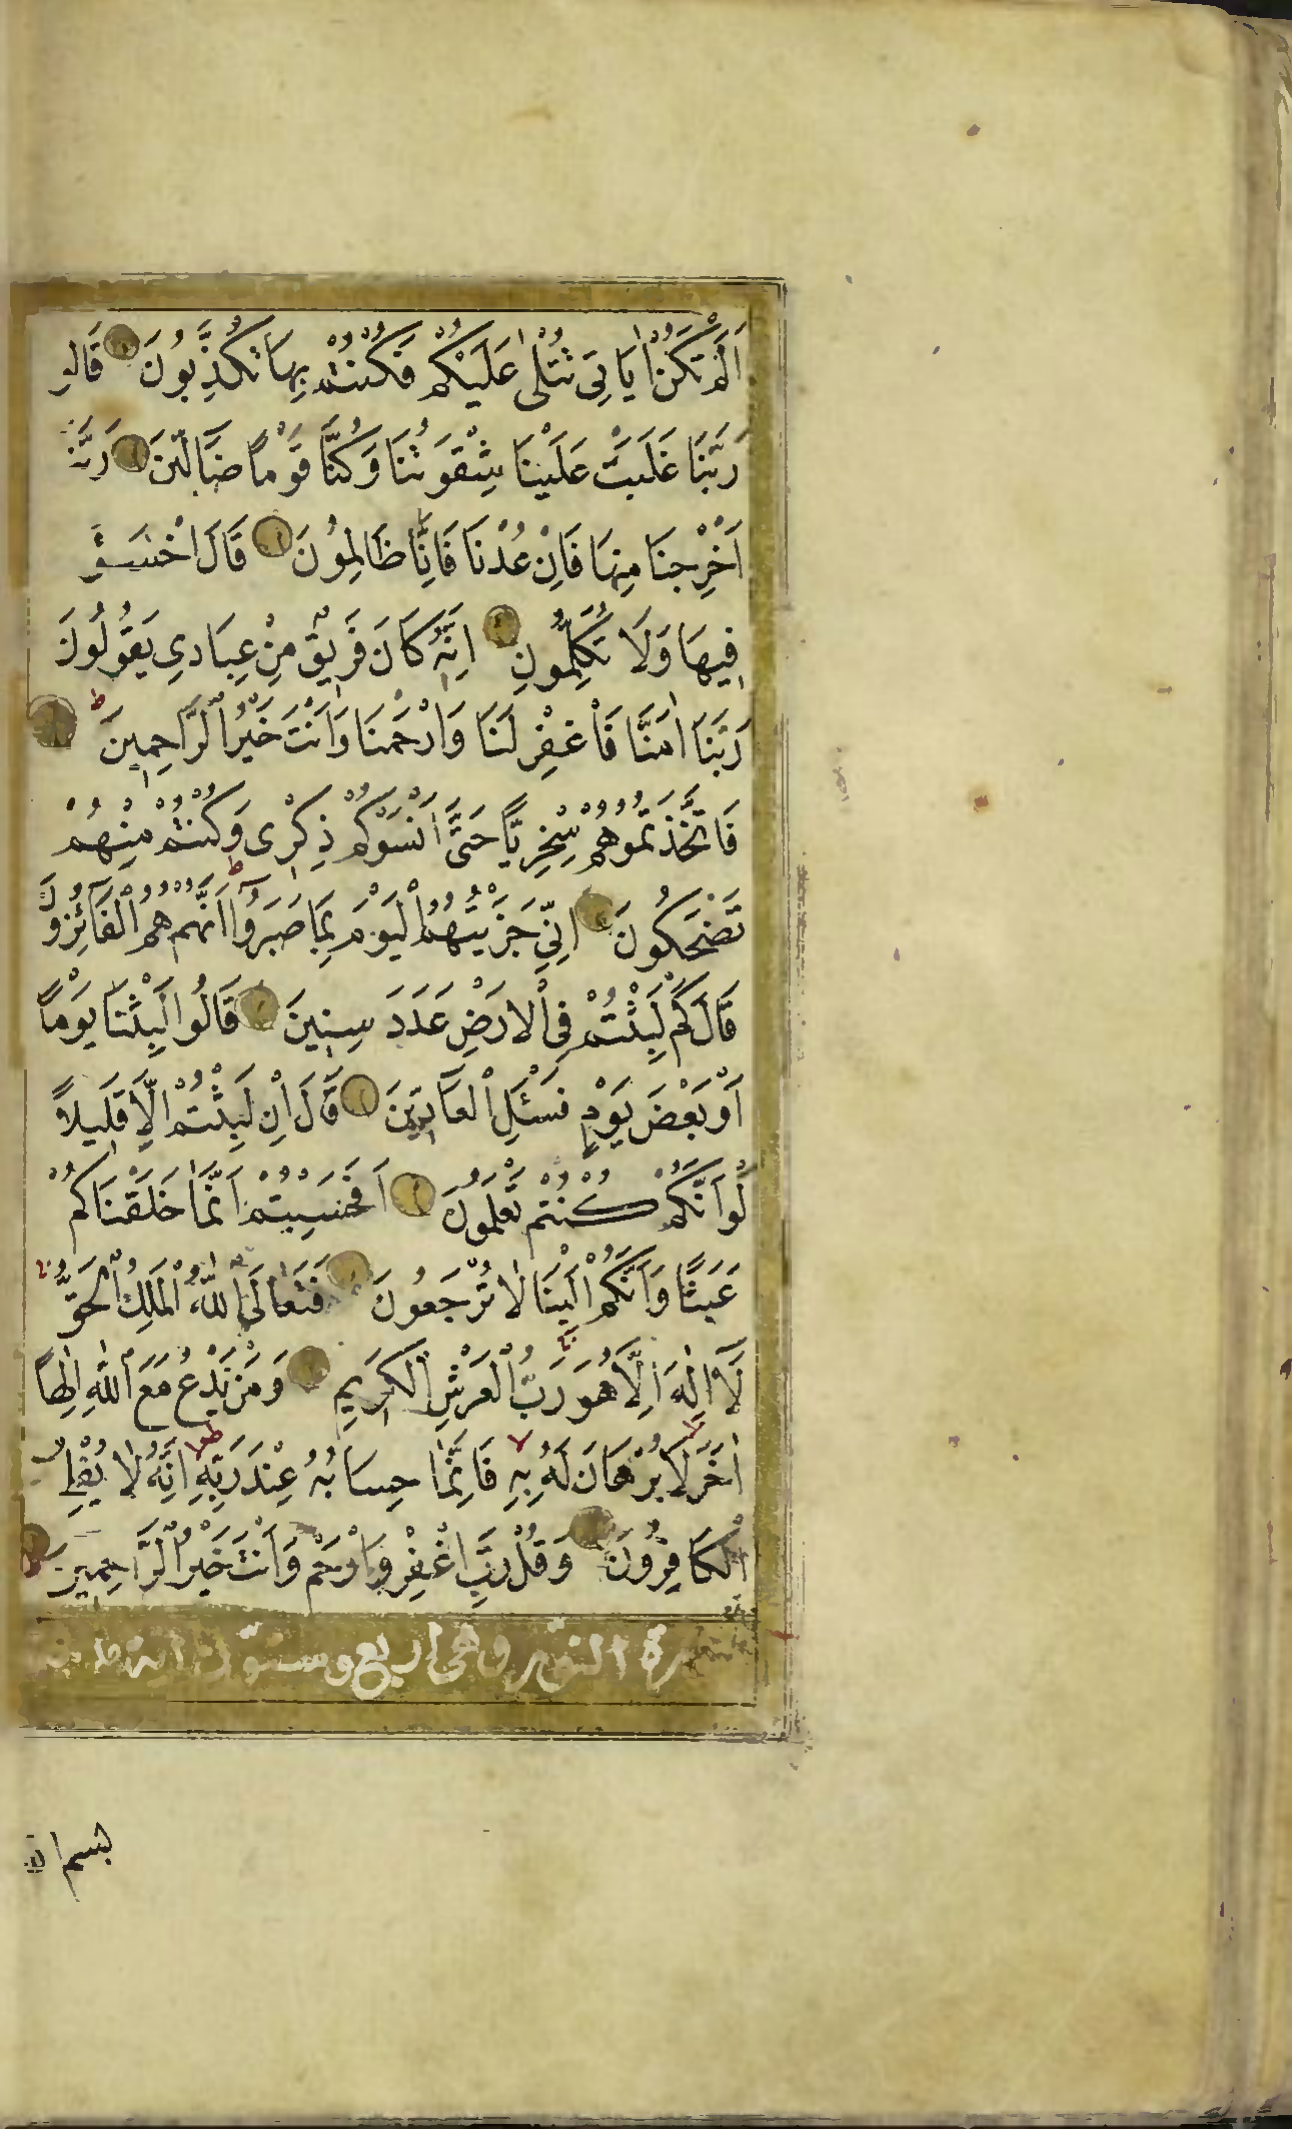 اَلَمْ تَكُنْ اٰيَاتِي تُتْلٰى عَلَيْكُمْ فَكُنْتُمْ بِهَا تُكَذِّبُونَ قَالُو
رَبَّنَا غَلَبَتْ عَلَيْنَا شِقْوَتُنَا وَكُنَّا قَوْمًا ضَالِّينَ رَبَّنَا
اَخْرِجْنَا مِنْهَا فَاِنْ عُدْنَا فَاِنَّا ظَالِمُونَ قَالَ اخْسَؤُ
فِيهَا وَلَا تُكَلِّمُونِ اِنَّهُ كَانَ فَرِيقٌ مِنْ عِبَادِي يَقُولُونَ
رَبَّنَا اٰمَنَّا فَاغْفِرْ لَنَا وَارْحَمْنَا وَاَنْتَ خَيْرُ الرَّاحِمِينَ
فَاتَّخَذْتُمُوهُمْ سِخْرِيًّا حَتّٰى اَنْسَوْكُمْ ذِكْرِى وَكُنْتُمْ مِنْهُمْ
تَضْحَكُونَ اِنِّي جَزَيْتُهُمُ الْيَوْمَ بِمَا صَبَرُوا اَنَّهُمْ هُمُ الْفَائِزُونَ
قَالَ كَمْ لَبِثْتُمْ فِي الْاَرْضِ عَدَدَ سِنِينَ قَالُوا لَبِثْنَا يَوْمًا
اَوْ بَعْضَ يَوْمٍ فَسْئَلِ الْعَادِّينَ قَالَ اِنْ لَبِثْتُمْ اِلَّا قَلِيلًا
لَوْ اَنَّكُمْ كُنْتُمْ تَعْلَمُونَ اَفَحَسِبْتُمْ اَنَّمَا خَلَقْنَاكُمْ
عَبَثًا وَاَنَّكُمْ اِلَيْنَا لَا تُرْجَعُونَ فَتَعَالَى اللّٰهُ الْمَلِكُ الْحَقُّ
لَا اِلٰهَ اِلَّا هُوَ رَبُّ الْعَرْشِ الْكَرِيمِ وَمَنْ يَدْعُ مَعَ اللّٰهِ اِلٰهًا
اٰخَرَ لَا بُرْهَانَ لَهُ بِهِ فَاِنَّمَا حِسَابُهُ عِنْدَ رَبِّهِ اِنَّهُ لَا يُفْلِحُ
الْكَافِرُونَ وَقُلْ رَبِّ اغْفِرْ وَارْحَمْ وَاَنْتَ خَيْرُ الرَّاحِمِينَ
سورة النور وهي اربع وستون اية
بسم